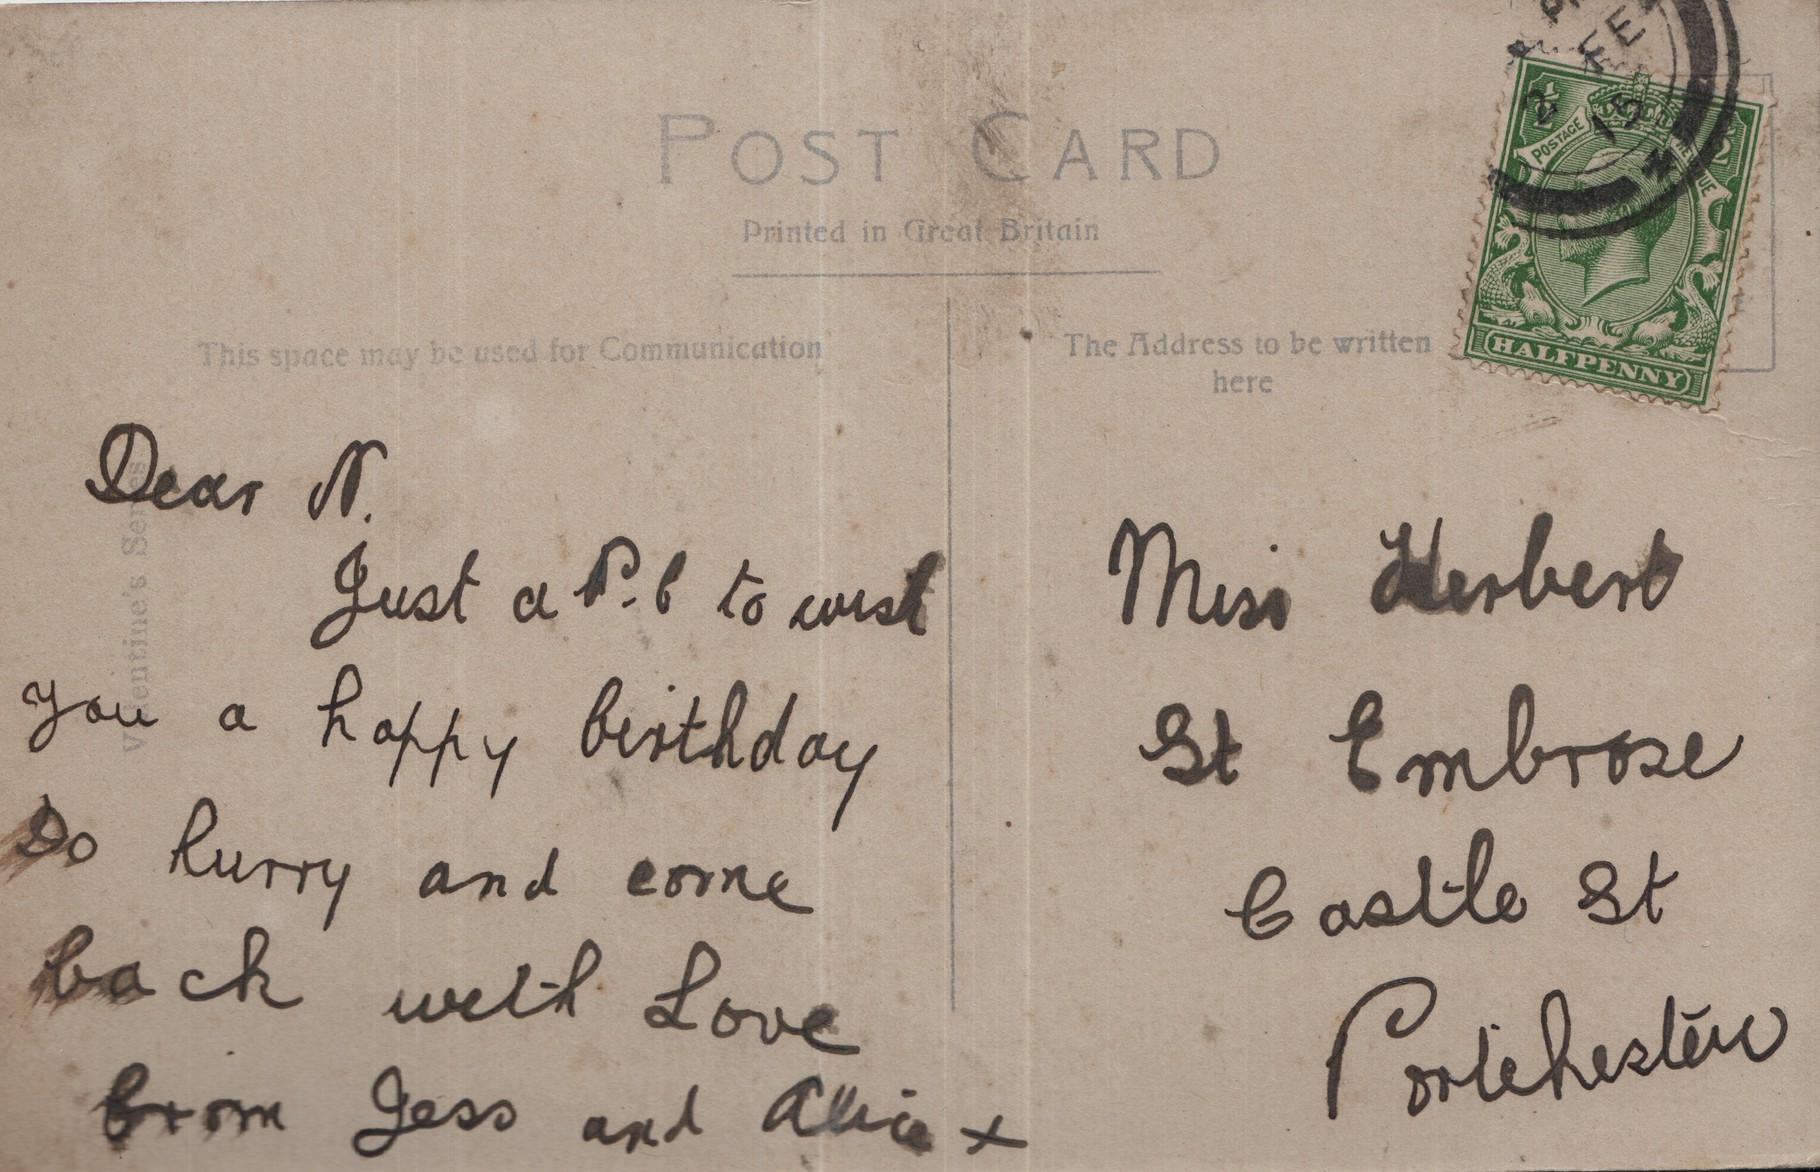 POST CARD
Printed in Great Britain
This space may be used for Communication
The Address to be written
here
POSTAGE
HALFPENNY
FE
2
15
Valentine's Series
Dear N.
Just a P.C to wish
you a happy birthday
Do hurry and come
back with Love
from Jess and Alice x
Miss Herbert
St Embrose
Castle St
Portchester